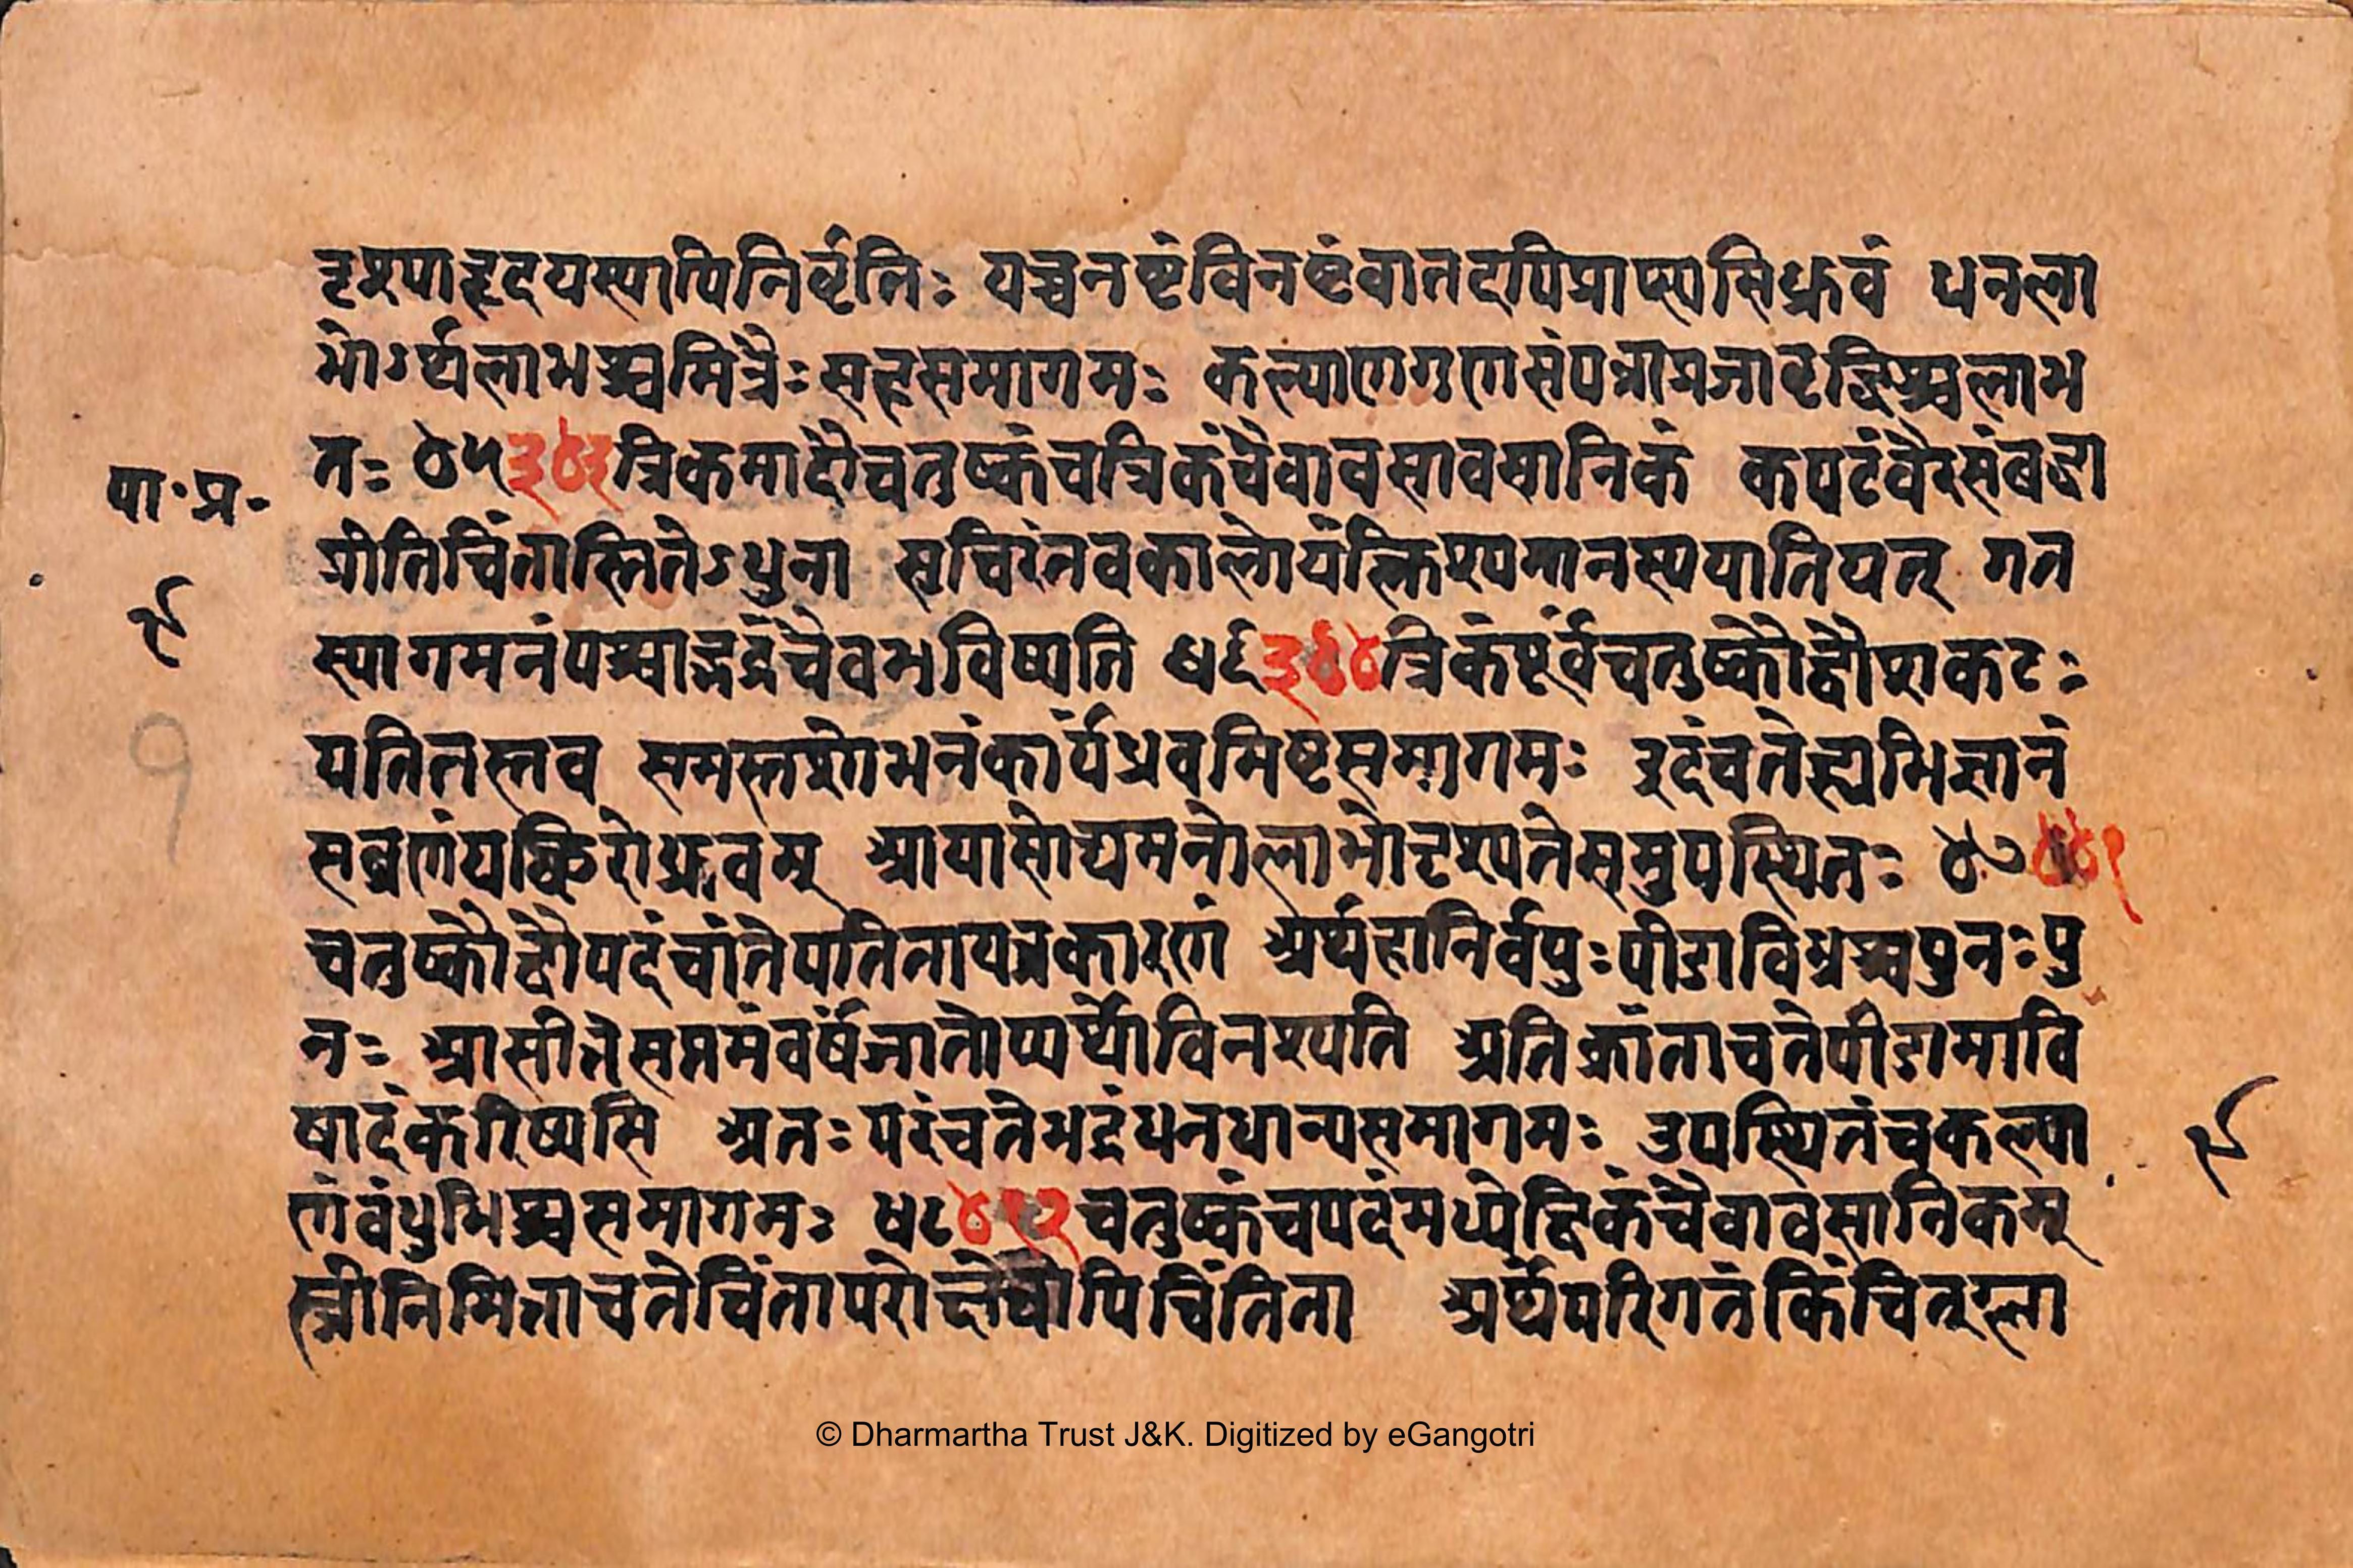 दृश्याहृदयस्यापिनिर्वृतिः यच्चनष्टंविनष्टंवातदपिप्राप्स्यसिध्रुवं धनला
भोऽर्थलाभश्चमित्रैःसहसमागमः कल्याणगणसंपन्नाप्रजावृद्धिश्चलाभ
तः ४५ ३४३ त्रिकमादौचतुष्कंचत्रिकंचैवावसावसानिकं कपटंवैरसंबद्धा
पा॰प्र॰
प्रीतिचिंतास्तितेऽधुना सुचिरंतवकालोयंक्लिश्यमानस्ययातियत् गत
९
स्यागमनंपश्चाद्भद्रंचैवभविष्यति ४६ ३४४ त्रिकंपूर्वंचतुष्कौद्वौशकटः
पतितस्तव समस्तशोभनंकार्यंध्रुवमिष्टसमागमः इदंचतेह्यभिज्ञानं
१
सव्रणंयच्छिरोध्रुवम् आयासोद्यमनोलाभोदृश्यतेसमुपस्थितः ४७ ४४१
चतुष्कौद्वौपदंचांतेपतितायत्रकारणं अर्थहानिर्वपुःपीडाविघ्नश्चपुनःपु
नः आसीत्तेसप्तमंवर्षंजातोप्यर्थोविनश्यति अतिक्रांताचतेपीडामावि
षादंकरिष्यसि अतःपरंचतेभद्रंधनधान्यसमागमः उपस्थितंचकल्या
९
णंबंधुभिश्चसमागमः ४८ ४१२ चतुष्कंचपदंमध्येद्विकंचैवावसानिकम्
स्त्रीनिमित्ताचतेचिंता अर्थंपरिगतंकिंचित्
© Dharmartha Trust J&K. Digitized by eGangotri